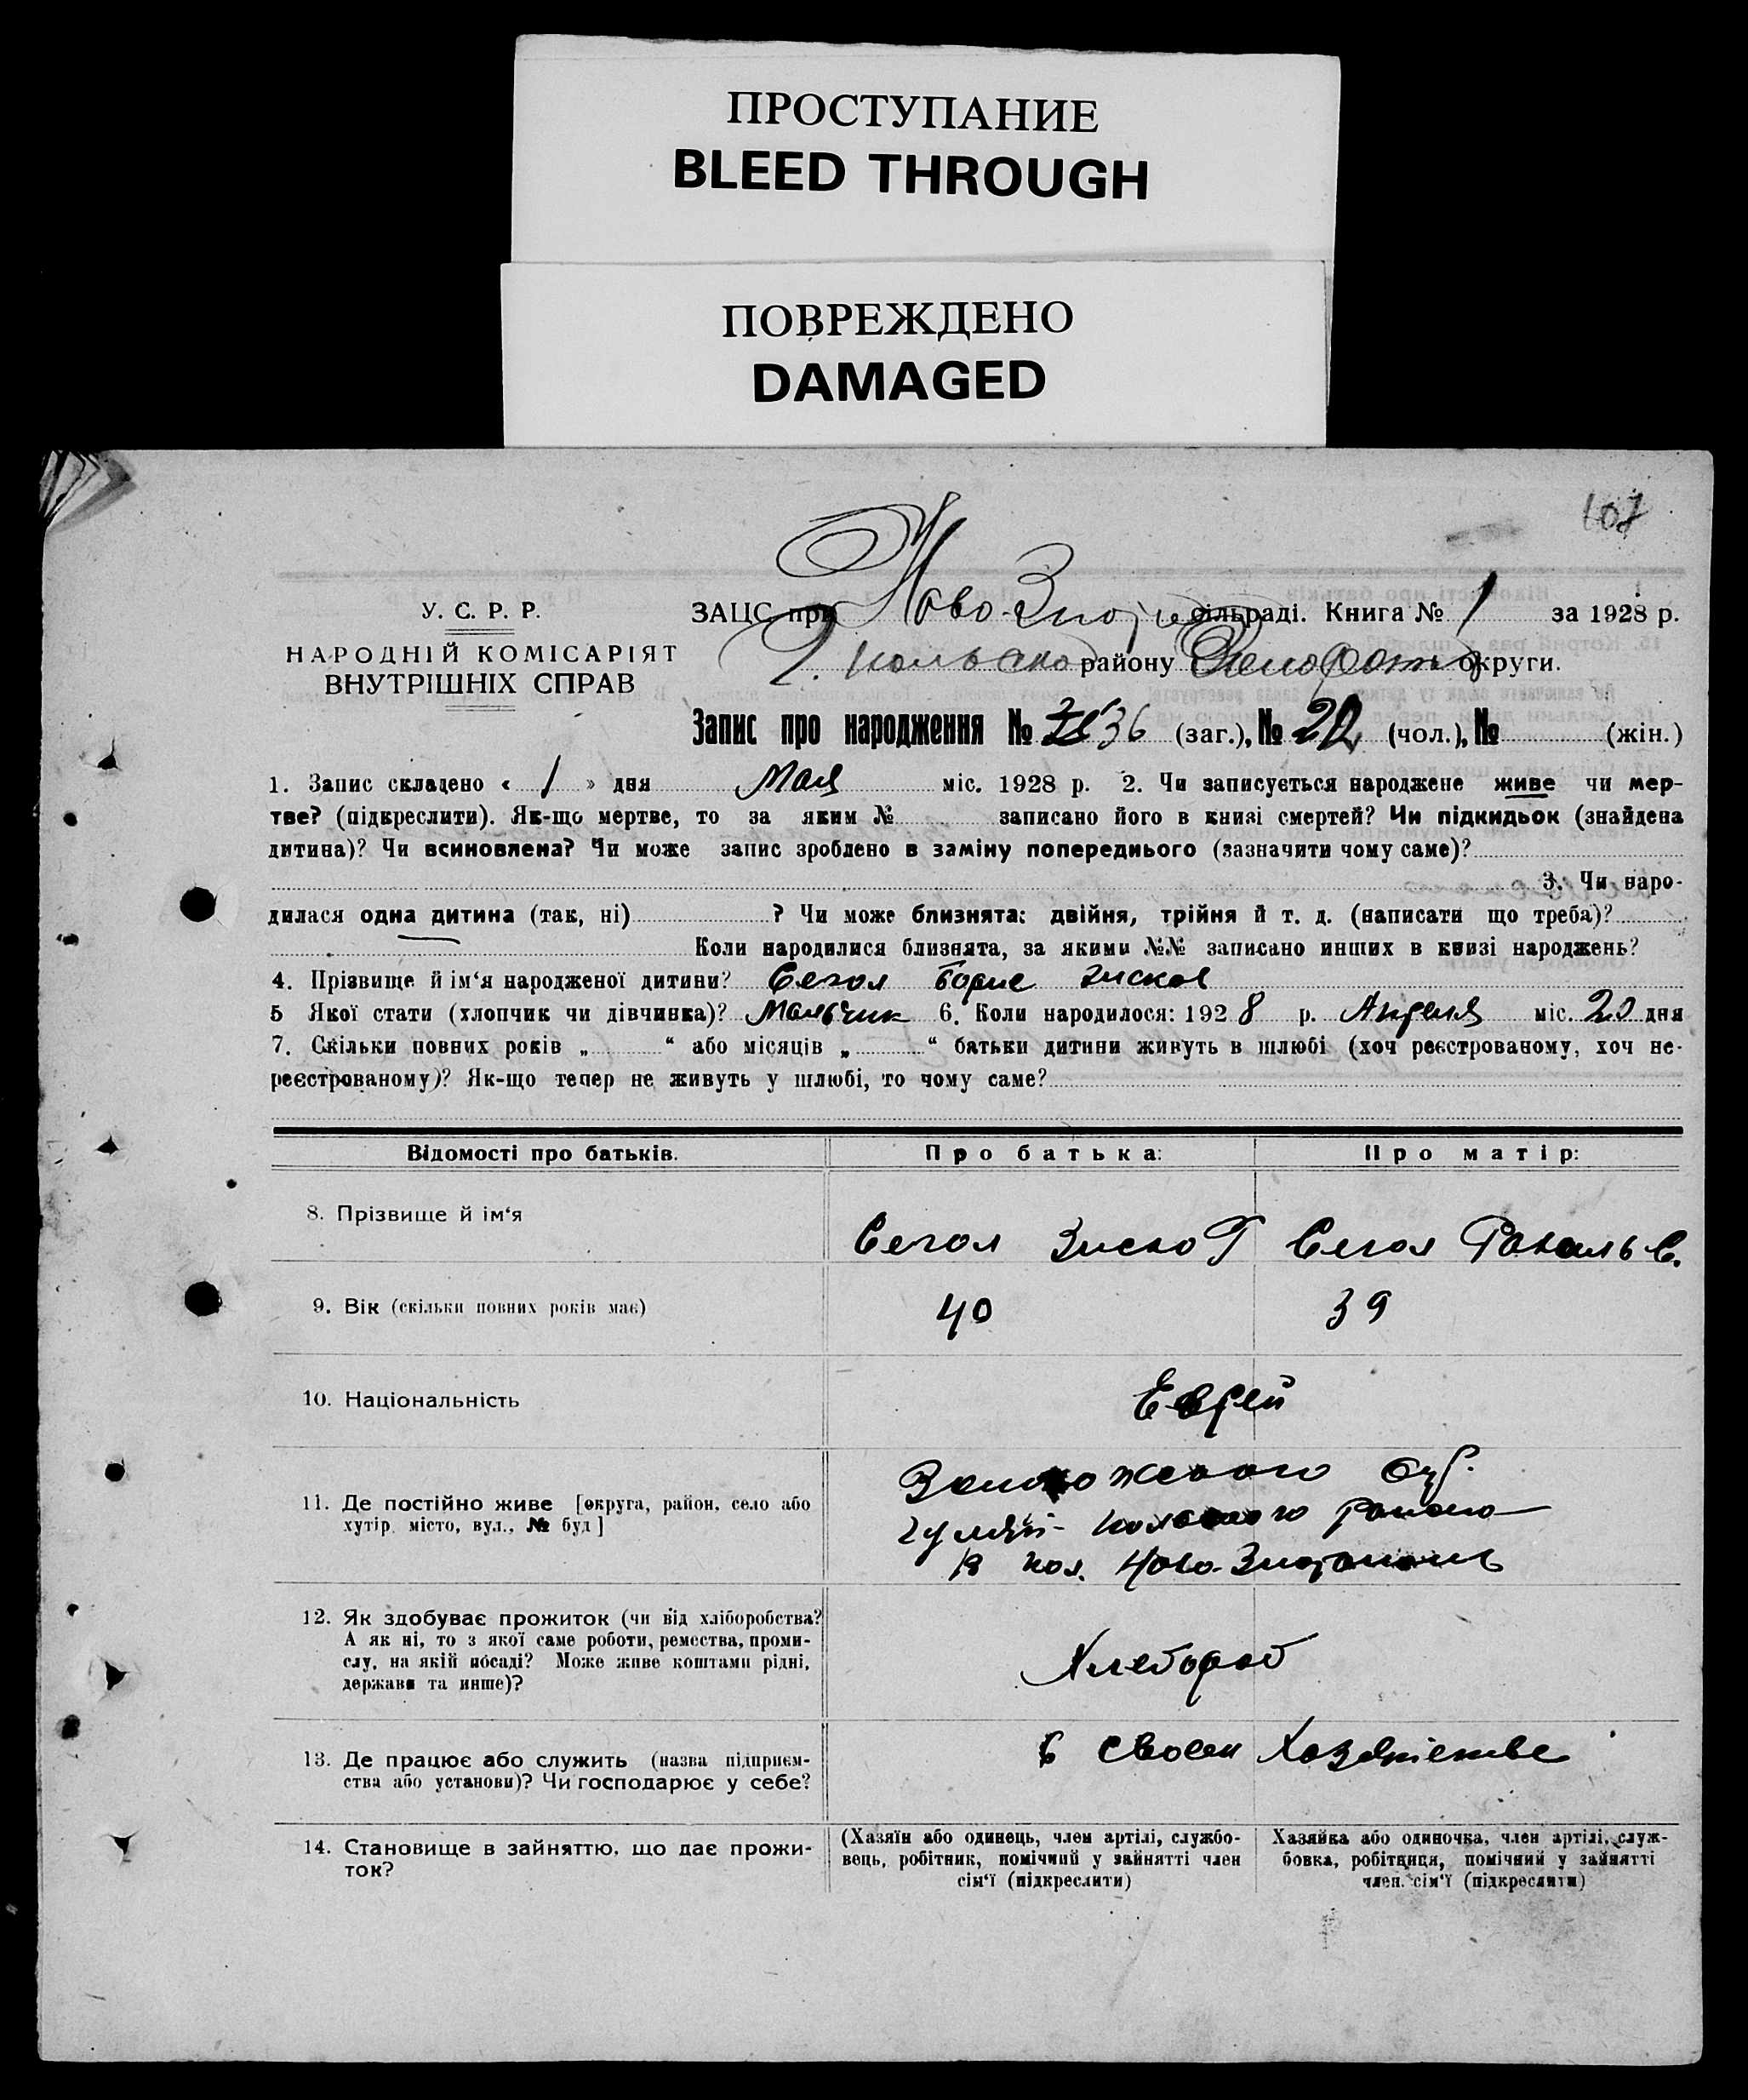 ПРОСТУПАНИЕ
BLEED THROUGH
ПОВРЕЖДЕНО
DAMAGED
107
У. С. Р. Р.
НАРОДНІЙ КОМІСАРІЯТ
ВНУТРІШНІХ СПРАВ
ЗАЦС при Ново- сільраді. Книга № 1 за 1928 р.
району округи.
Запис про народження № 36 (заг.), № 22 (чол.), № (жін.)
1. Запис складено « 1 » дня Мая міс. 1928 р. 2. Чи записується народжене живе чи мер-
тве? (підкреслити). Як-що мертве, то за яким № записано його в книзі смертей? Чи підкидьок (знайдена
дитина)? Чи всиновлена? Чи може запис зроблено в заміну попереднього (зазначити чому саме)?
3. Чи наро-
дилася одна дитина (так, ні) ? Чи може близнята: двійня, трійня й т. д. (написати що треба)?
Коли народилися близнята, за якими №№ записано инших в книзі народжень?
4. Прізвище й ім‘я народженої дитини? Сегол Борис Зисков
5 Якої стати (хлопчик чи дівчинка)? Мальчик 6. Коли народилося: 1928 р. Апреля міс. 20 дня
7. Скільки повних років „ “ або місяців „ “ батьки дитини живуть в шлюбі (хоч реєстрованому, хоч не-
реєстрованому)? Як-що тепер не живуть у шлюбі, то чому саме?
Відомості про батьків. Про батька: Про матір:
8. Прізвище й ім‘я
Сегол Зиско Г Сегол Рахаль С.
9. Вік (скільки повних років має) 40 39
10. Національність Еврей
11. Де постійно живе [округа, район, село або
хутір, місто, вул., № буд]
Запорожского Окр.
Гуляй-Польского Района
кол. Ново-Златополь
12. Як здобуває прожиток (чи від хліборобства?
А як ні, то з якої саме роботи, ремества, проми-
слу, на якій посаді? Може живе коштами рідні,
держави та инше)?
Хлебороб
13. Де працює або служить (назва підприєм-
ства або установи)? Чи господарює у себе?
в своем Хозяйстве
14. Становище в зайняттю, що дає прожи-
ток?
(Хазяїн або одинець, член артілі, службо-
вець, робітник, помічний у зайнятті член
сім‘ї (підкреслити)
Хазяйка або одиночка, член артілі, служ-
бовка, робітниця, помічний у зайнятті
член. сім‘ї (підкреслити)